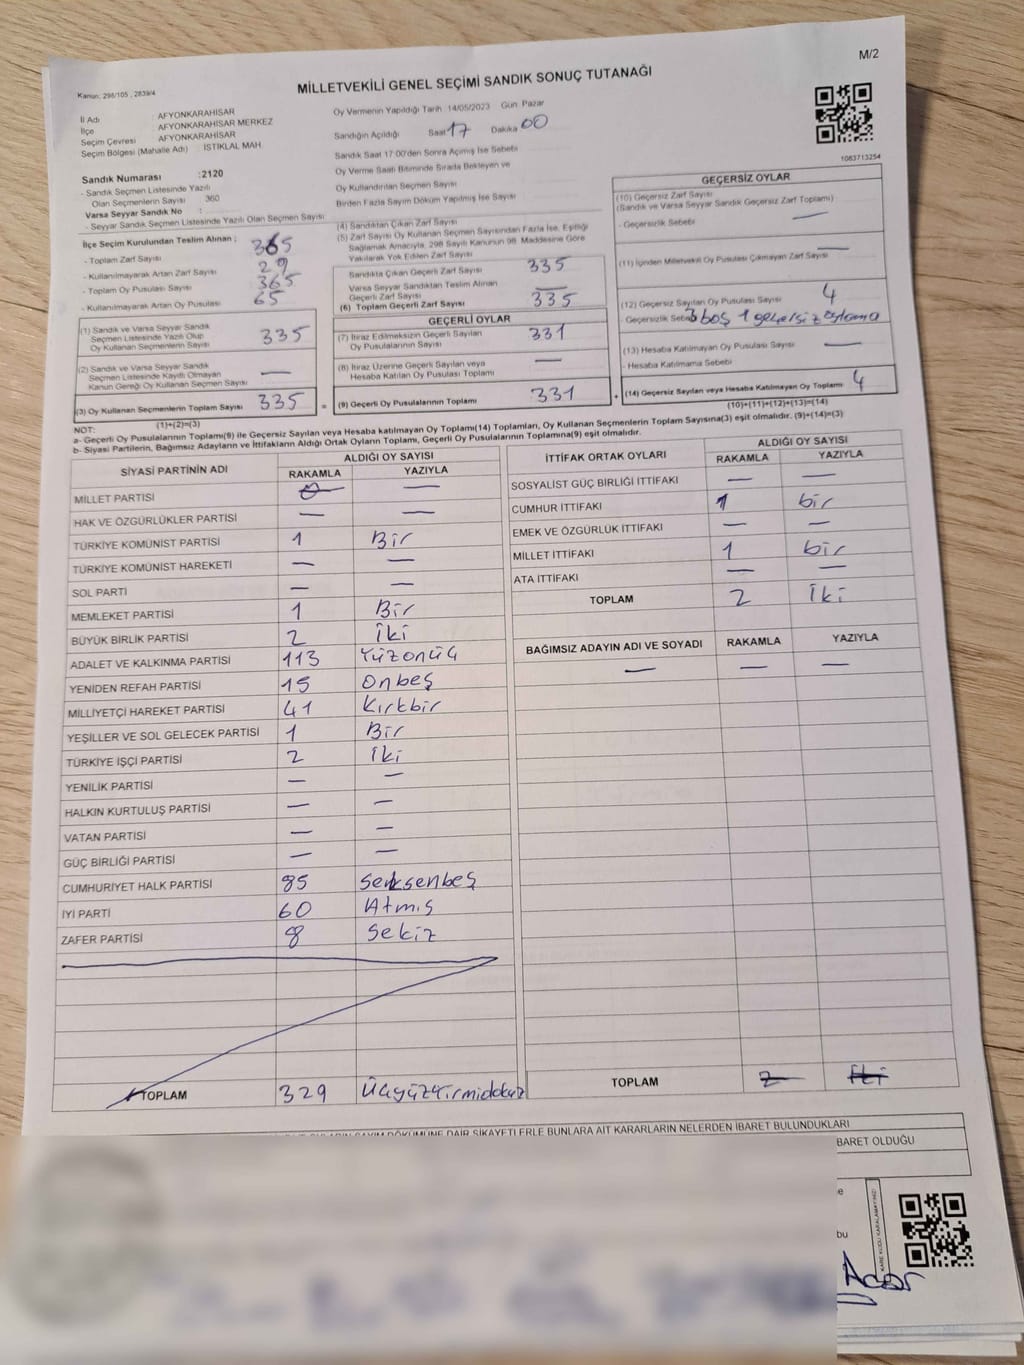 M/2
MİLLETVEKİLİ GENEL SEÇİMİ SANDIK SONUÇ TUTANAĞI
Kanun: 298/105 , 2839/4
İl Adı AFYONKARAHİSAR
İlçe AFYONKARAHİSAR MERKEZ
Seçim Çevresi AFYONKARAHİSAR
Seçim Bölgesi (Mahalle Adı) : İSTİKLAL MAH.
Sandık Numarası :2120
- Sandık Seçmen Listesinde Yazılı
Olan Seçmenlerin Sayısı 360
Varsa Seyyar Sandık No :
- Seyyar Sandık Seçmen Listesinde Yazılı Olan Seçmen Sayısı
İlçe Seçim Kurulundan Teslim Alınan ;
- Toplam Zarf Sayısı 365
- Kullanılmayarak Artan Zarf Sayısı 29
- Toplam Oy Pusulası Sayısı 365
- Kullanılmayarak Artan Oy Pusulası 65
(1) Sandık ve Varsa Seyyar Sandık
Seçmen Listesinde Yazılı Olup
Oy Kullanan Seçmenlerin Sayısı 335
(2) Sandık ve Varsa Seyyar Sandık
Seçmen Listesinde Kayıtlı Olmayan
Kanun Gereği Oy Kullanan Seçmen Sayısı —
(3) Oy Kullanan Seçmenlerin Toplam Sayısı 335
(1)+(2)=(3)
Oy Vermenin Yapıldığı Tarih 14/05/2023 Gün Pazar
Sandığın Açıldığı Saat 17 Dakika 00
Sandık Saat 17:00'den Sonra Açmış İse Sebebi
Oy Verme Saati Bitiminde Sırada Bekleyen ve
Oy Kullandırılan Seçmen Sayısı
Birden Fazla Sayım Döküm Yapılmış İse Sayısı
(4) Sandıktan Çıkan Zarf Sayısı
(5) Zarf Sayısı Oy Kullanan Seçmen Sayısından Fazla İse, Eşitliği
Sağlamak Amacıyla, 298 Sayılı Kanunun 98. Maddesine Göre
Yakılarak Yok Edilen Zarf Sayısı
Sandıkta Çıkan Geçerli Zarf Sayısı 335
Varsa Seyyar Sandıktan Teslim Alınan
Geçerli Zarf Sayısı —
(6) Toplam Geçerli Zarf Sayısı 335
GEÇERLİ OYLAR
(7) İtiraz Edilmeksizin Geçerli Sayılan
Oy Pusulalarının Sayısı 331
(8) İtiraz Üzerine Geçerli Sayılan veya
Hesaba Katılan Oy Pusulası Toplamı —
= (9) Geçerli Oy Pusulalarının Toplamı 331
1083713254
GEÇERSİZ OYLAR
(10) Geçersiz Zarf Sayısı
(Sandık ve Varsa Seyyar Sandık Geçersiz Zarf Toplamı) —
- Geçersizlik Sebebi
(11) İçinden Milletvekili Oy Pusulası Çıkmayan Zarf Sayısı —
(12) Geçersiz Sayılan Oy Pusulası Sayısı 4
- Geçersizlik Sebebi 3 boş 1 geçersiz oylama
(13) Hesaba Katılmayan Oy Pusulası Sayısı —
- Hesaba Katılmama Sebebi
+ (14) Geçersiz Sayılan veya Hesaba Katılmayan Oy Toplamı 4
(10)+(11)+(12)+(13)=(14)
NOT:
a- Geçerli Oy Pusulalarının Toplamı(9) ile Geçersiz Sayılan veya Hesaba Katılmayan Oy Toplamı(14) Toplamları, Oy Kullanan Seçmenlerin Toplam Sayısına(3) eşit olmalıdır. (9)+(14)=(3)
b- Siyasi Partilerin, Bağımsız Adayların ve İttifakların Aldığı Ortak Oyların Toplamı, Geçerli Oy Pusulalarının Toplamına(9) eşit olmalıdır.
SİYASİ PARTİNİN ADI ALDIĞI OY SAYISI
RAKAMLA YAZIYLA
MİLLET PARTİSİ — —
HAK VE ÖZGÜRLÜKLER PARTİSİ — —
TÜRKİYE KOMÜNİST PARTİSİ 1 Bir
TÜRKİYE KOMÜNİST HAREKETİ — —
SOL PARTİ — —
MEMLEKET PARTİSİ 1 Bir
BÜYÜK BİRLİK PARTİSİ 2 İki
ADALET VE KALKINMA PARTİSİ 113 Yüzonüç
YENİDEN REFAH PARTİSİ 15 Onbeş
MİLLİYETÇİ HAREKET PARTİSİ 41 Kırkbir
YEŞİLLER VE SOL GELECEK PARTİSİ 1 Bir
TÜRKİYE İŞÇİ PARTİSİ 2 İki
YENİLİK PARTİSİ — —
HALKIN KURTULUŞ PARTİSİ — —
VATAN PARTİSİ — —
GÜÇ BİRLİĞİ PARTİSİ — —
CUMHURİYET HALK PARTİSİ 85 Seksenbeş
İYİ PARTİ 60 Atmış
ZAFER PARTİSİ 8 Sekiz
TOPLAM 329 Üçyüzyirmidokuz
İTTİFAK ORTAK OYLARI ALDIĞI OY SAYISI
RAKAMLA YAZIYLA
SOSYALİST GÜÇ BİRLİĞİ İTTİFAKI — —
CUMHUR İTTİFAKI 1 bir
EMEK VE ÖZGÜRLÜK İTTİFAKI — —
MİLLET İTTİFAKI 1 bir
ATA İTTİFAKI — —
TOPLAM 2 İki
BAĞIMSIZ ADAYIN ADI VE SOYADI RAKAMLA YAZIYLA
— — —
TOPLAM 2 İki
DÖKÜMÜNE DAİR ŞİKAYETLERLE BUNLARA AİT KARARLARIN NELERDEN İBARET BULUNDUKLARI
BARET OLDUĞU
KARE KODU KARALAMAYINIZ!
bu
Acar